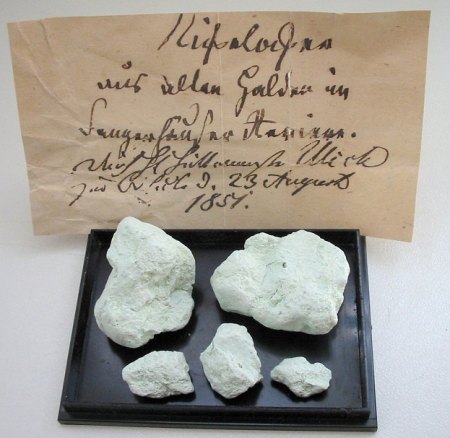 Nickelocher
aus alten Halden im
Sangerhäuser Reviere.
Hüttenmeister Ulich
d. 23 August
1851.